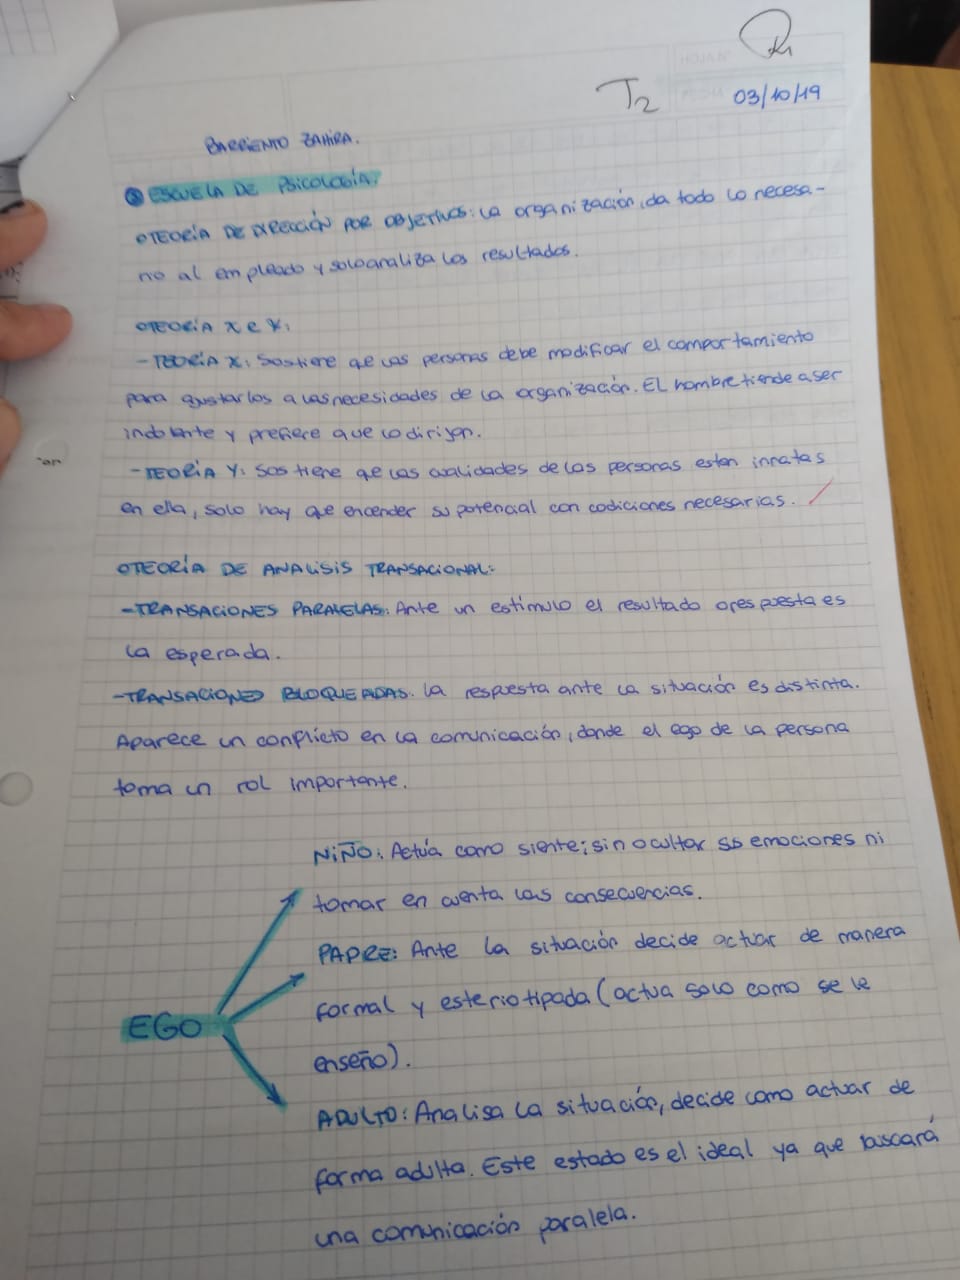 T2
03/10/19
BARRIENTO ZAHIRA.
ESCUELA DE PSICOLOGÍA:
TEORÍA DE DIRECCIÓN POR OBJETIVOS: La organización, da todo lo necesa-
rio al empleado y solo analiza los resultados.
TEORÍA X e Y:
-TEORÍA X: Sostiene qe las personas debe modificar el comportamiento
para ajustarlos a las necesidades de la organización. El hombre tiende a ser
indolente y prefiere que lo dirijan.
-TEORÍA Y: Sostiene qe las cualidades de las personas estan innatas
en ella, solo hay que encender su potencial con codiciones necesarias.
TEORÍA DE ANALISIS TRANSACIONAL:
-TRANSACIONES PARALELAS: Ante un estimulo el resultado o respuesta es
la esperada.
-TRANSACIONES BLOQUEADAS. La respuesta ante la situación es distinta.
Aparece un conflicto en la comunicación, donde el ego de la persona
toma un rol importante.
NIÑO: Actúa como siente; sin ocultar sus emociones ni
tomar en cuenta las consecuencias.
PADRE: Ante la situación decide actuar de manera
formal y esteriotipada (actua solo como se le
enseño).
EGO
ADULTO: Analisa la situación, decide como actuar de
forma adulta. Este estado es el ideal ya que buscará
una comunicación paralela.